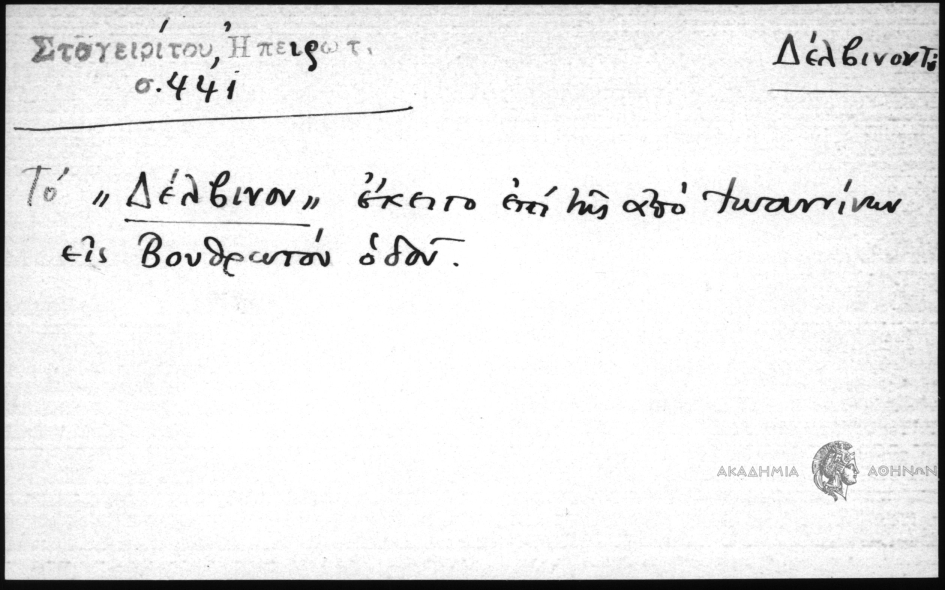 Σταγειρίτου, Ηπειρωτ.
σ. 441
Δέλβινον Τό
Τό „Δέλβινον„ έκειτο επί της από Ιωαννίνων
εις Βουθρωτόν οδού.
ΑΚΑΔΗΜΙΑ ΑΘΗΝΩΝ